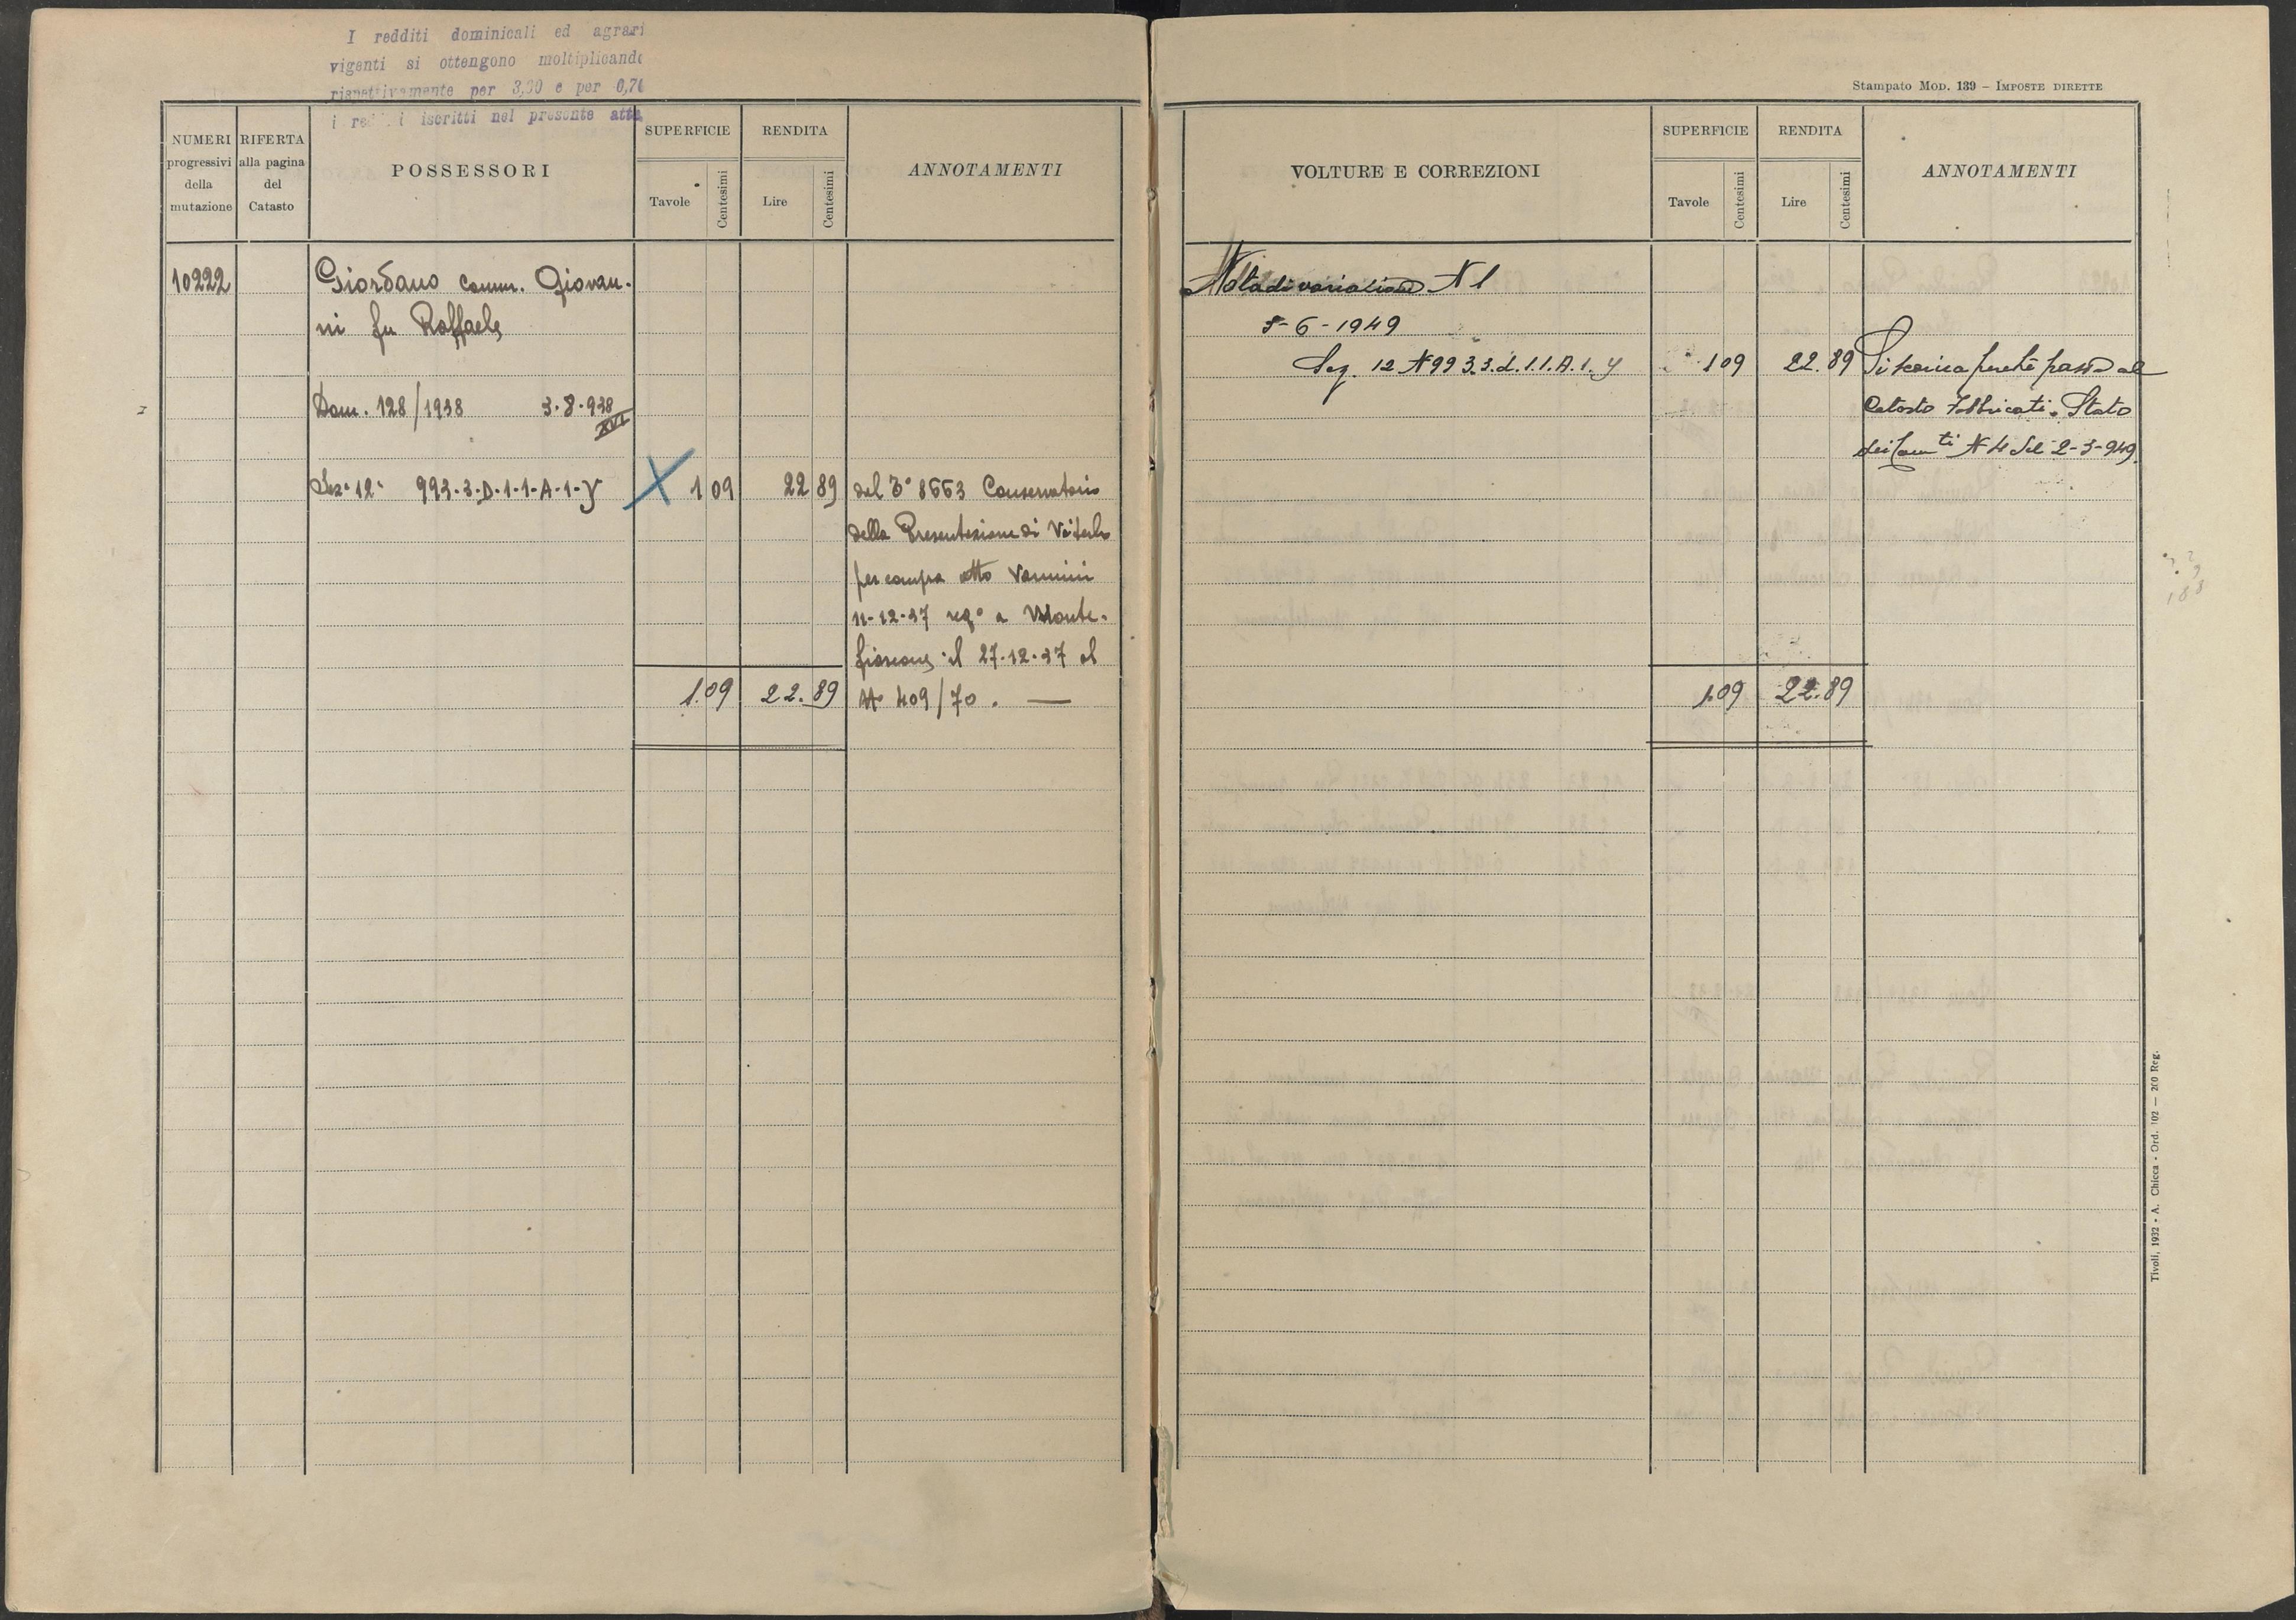 I redditi dominicali ed agrari
vigenti si ottengono moltiplicando
rispettivamente per 3,30 e per 0,70
i redditi iscritti nel presente atto
NUMERI progressivi della mutazione
RIFERTA alla pagina del Catasto
POSSESSORI
SUPERFICIE
Tavole
Centesimi
RENDITA
Lire
Centesimi
ANNOTAMENTI
10222
Giordano Comm. Giovan-
ni fu Raffaele
Dom. 128/1938 3.8.938
XVI
Sez. 12 993.3.D.1.1.A.1.y
X 1 09 22 89
dal 3° 8663 Conservatorio
della Presentazione di Viterbo
per compra atto Vannini
11-12-37 reg° a Monte-
fiascone il 27.12.37 al
N° 409/70. —
1.09 22.89
Stampato MOD. 139 – IMPOSTE DIRETTE
VOLTURE E CORREZIONI
SUPERFICIE
Tavole
Centesimi
RENDITA
Lire
Centesimi
ANNOTAMENTI
Nota di variazione N 1
-6-1949
Sez. 12 N 993.3.d.1.1.A.1.y 1 09 22.89
Si scarica perchè passa al
Catasto Fabbricati. Stato
dei Cam.ti N 4 del 2-3-949.
1.09 22.89
Tivoli, 1932 - A. Chicca - Ord. 102 — 200 Reg.